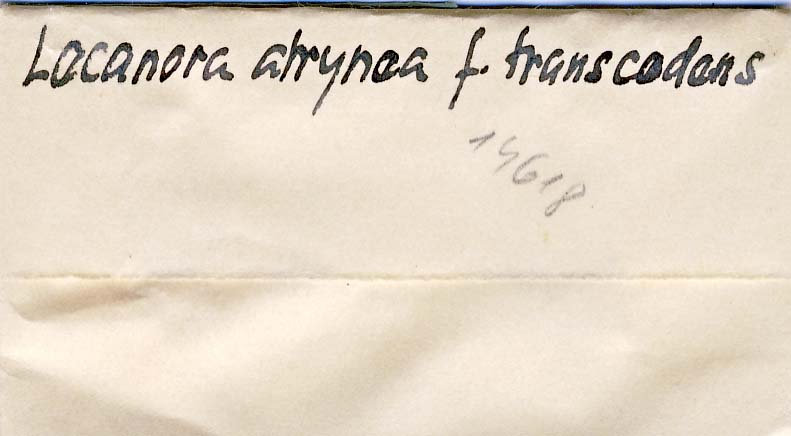 Lecanora atrynea f. transcedens
14618